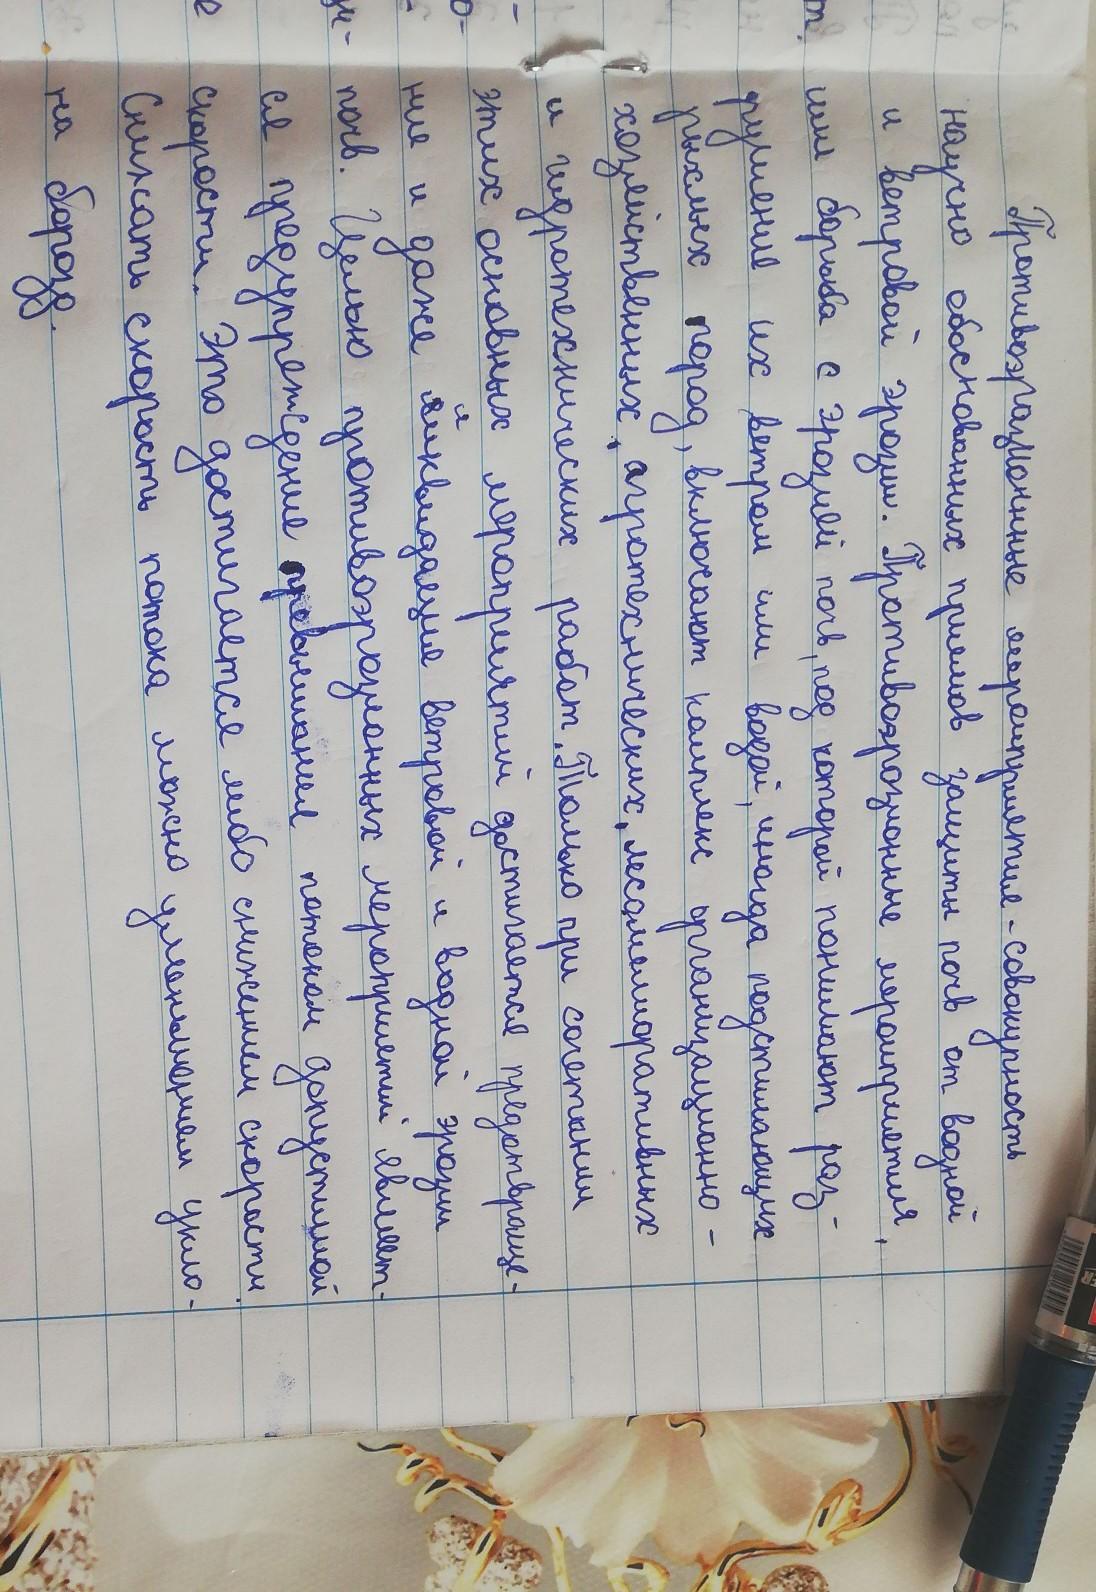 Противоэрозионные мероприятия - совокупность
научно обоснованных приемов защиты почв от водной
и ветровой эрозии. Противоэрозионные мероприятия,
или борьба с эрозией почв, под которой понимают раз-
рушение их ветром или водой, иногда подстилающих
рыхлых пород, включают комплекс организационно-
хозяйственных, агротехнических, лесомелиоративных
и гидротехнических работ. Только при сочетании
этих основных мероприятий достигается предотвраще-
ние и даже ликвидация ветровой и водной эрозии
почв. Целью противоэрозионных мероприятий являет-
ся предупреждение превышения потоком допустимой
скорости. Это достигается либо снижением скорости.
Снижать скорость потока можно уменьшением укло-
на борозд.